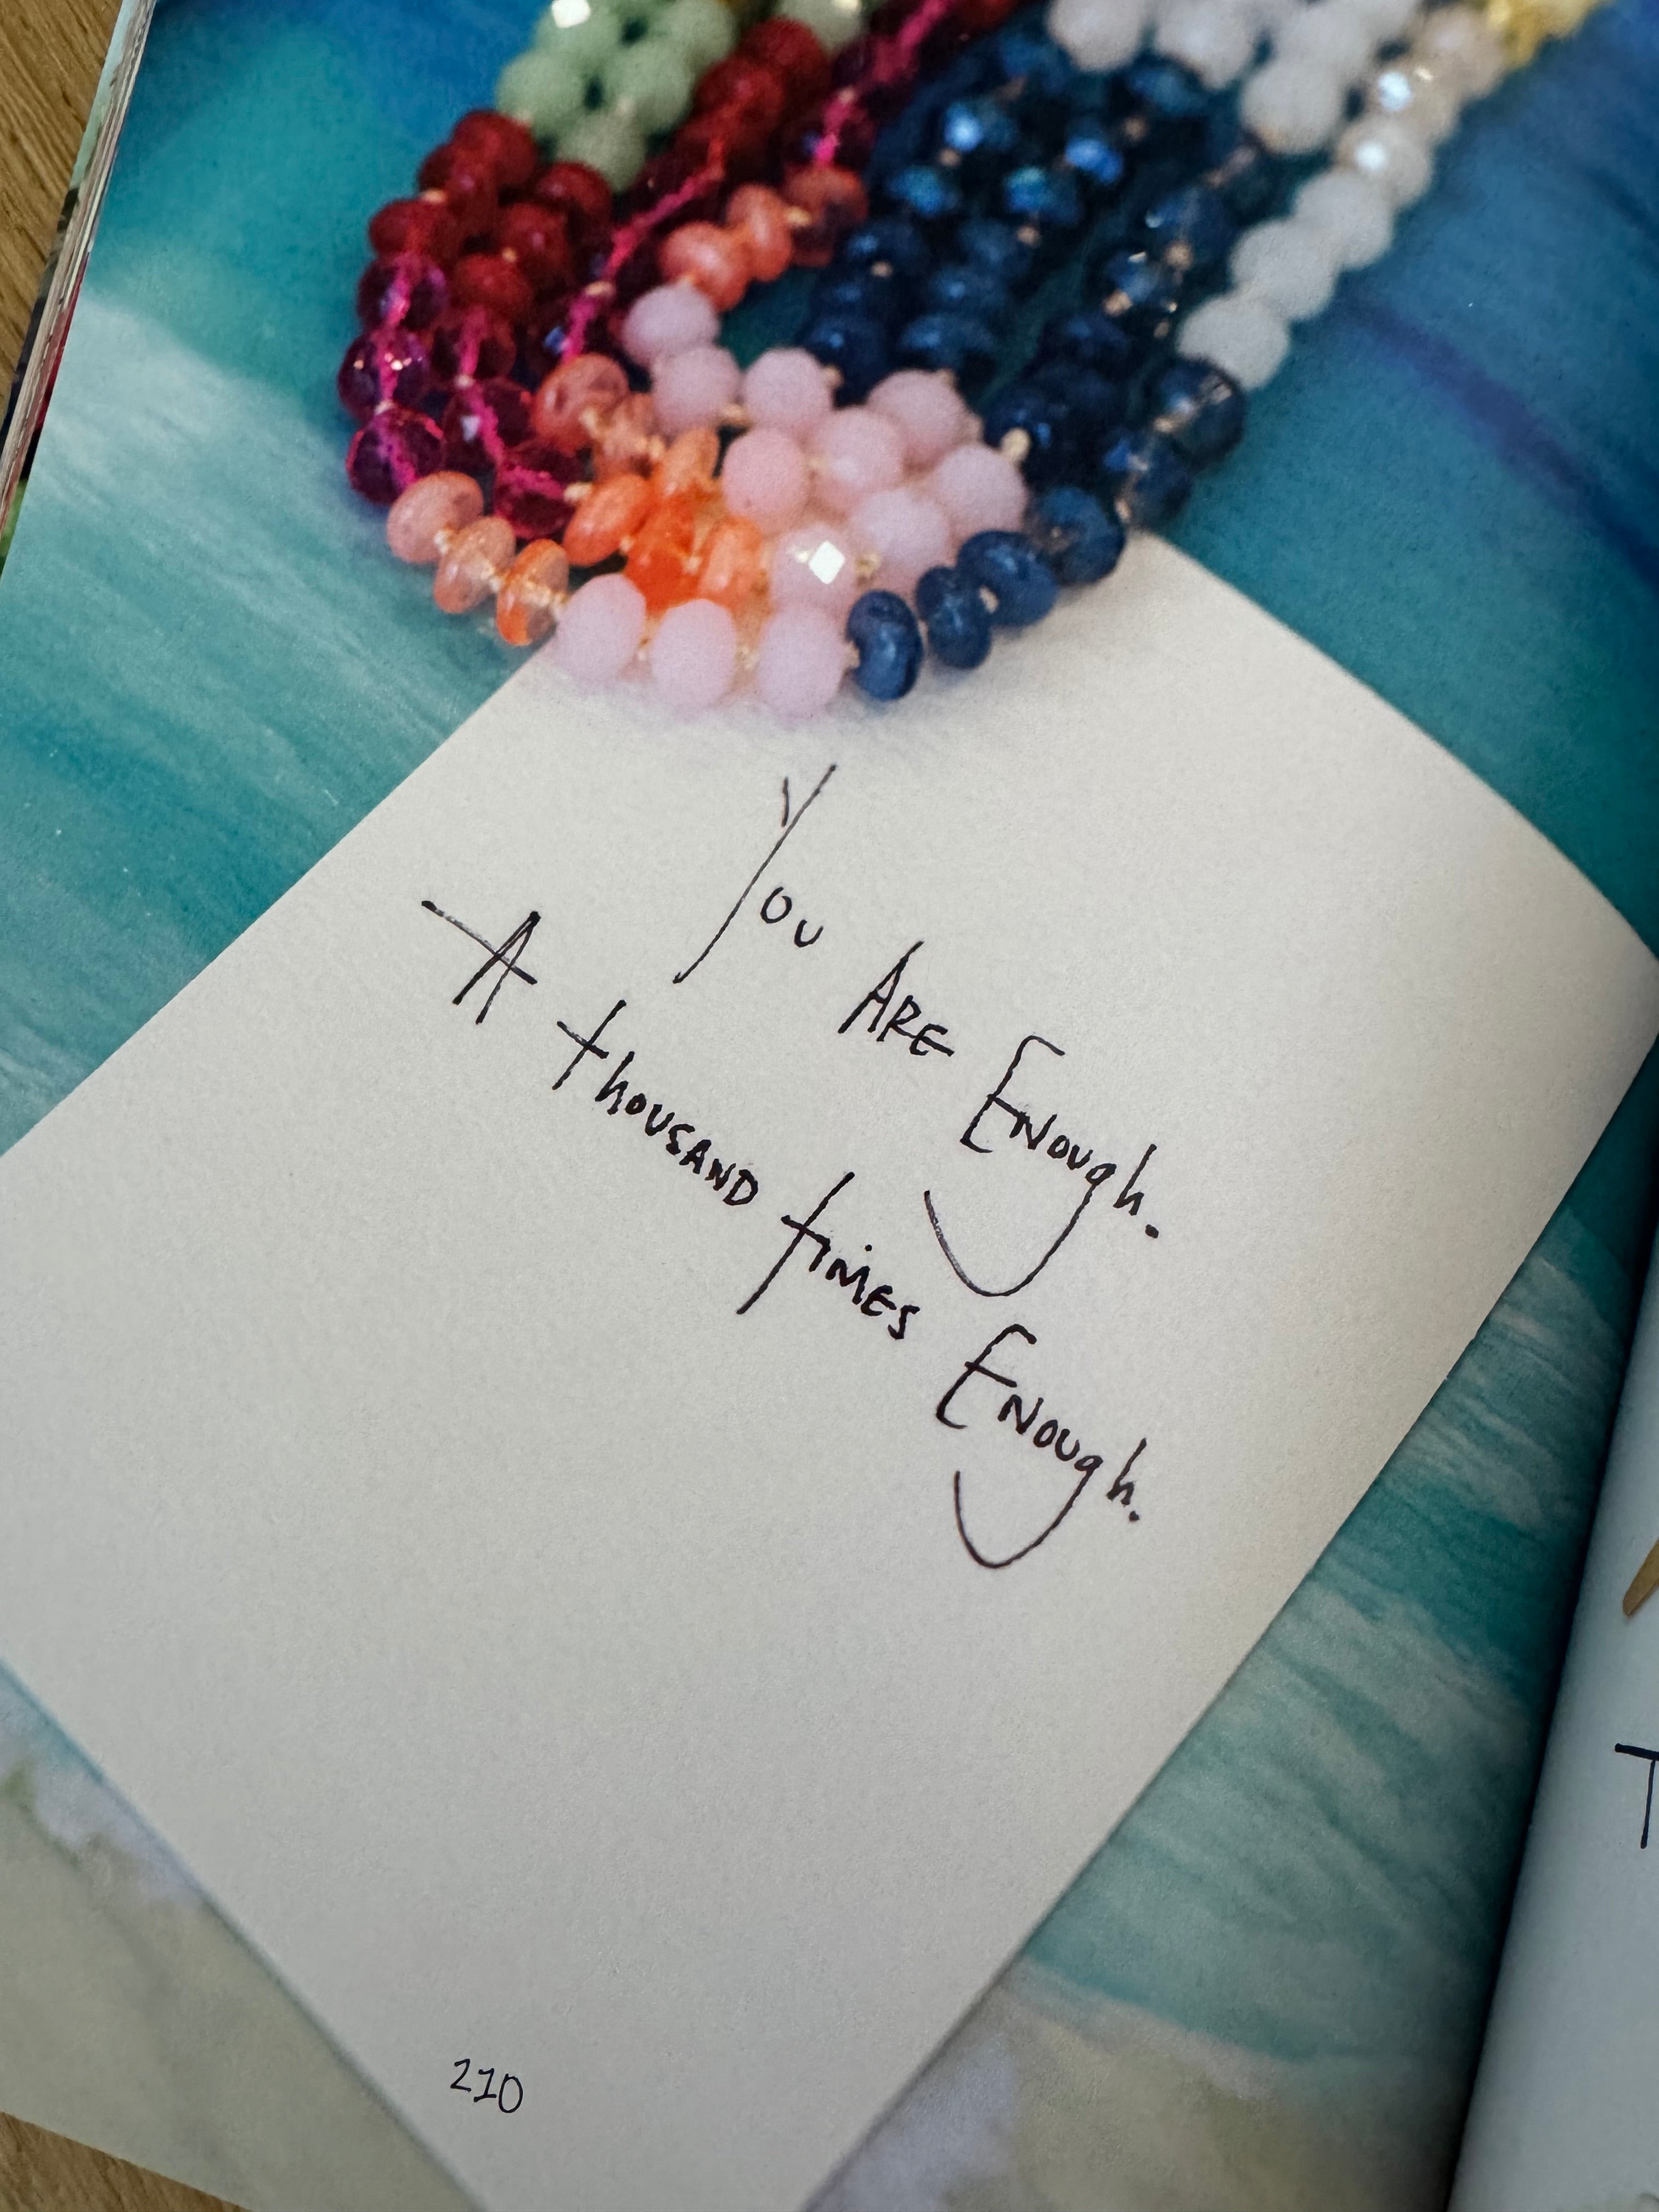 You ARE Enough.
A thousand times Enough.
210
T